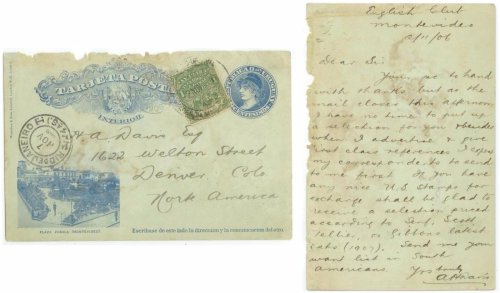 TARJETA POSTAL
INTERIOR
H. A. Davis Esq
1622 Welton Street
Denver, Colo
North America
PLAZA ZABALA (MONTEVIDEO)
Escríbase de este lado la dirección y la comunicación del otro.
English Club
Montevideo
Dear Sir
Yours to hand
with thanks but as the
mail closes this afternoon
I have no time to put up
a selection for you. Besides
when I advertise & give
first class references I expect
my correspondents to send
to me first. If you have
any nice U S Stamps for
exchange shall be glad to
receive a selection priced
according to Senf, Scott,
or Gibbons latest
cats (1907). Send me your
want list in South
Americans. Yrs truly